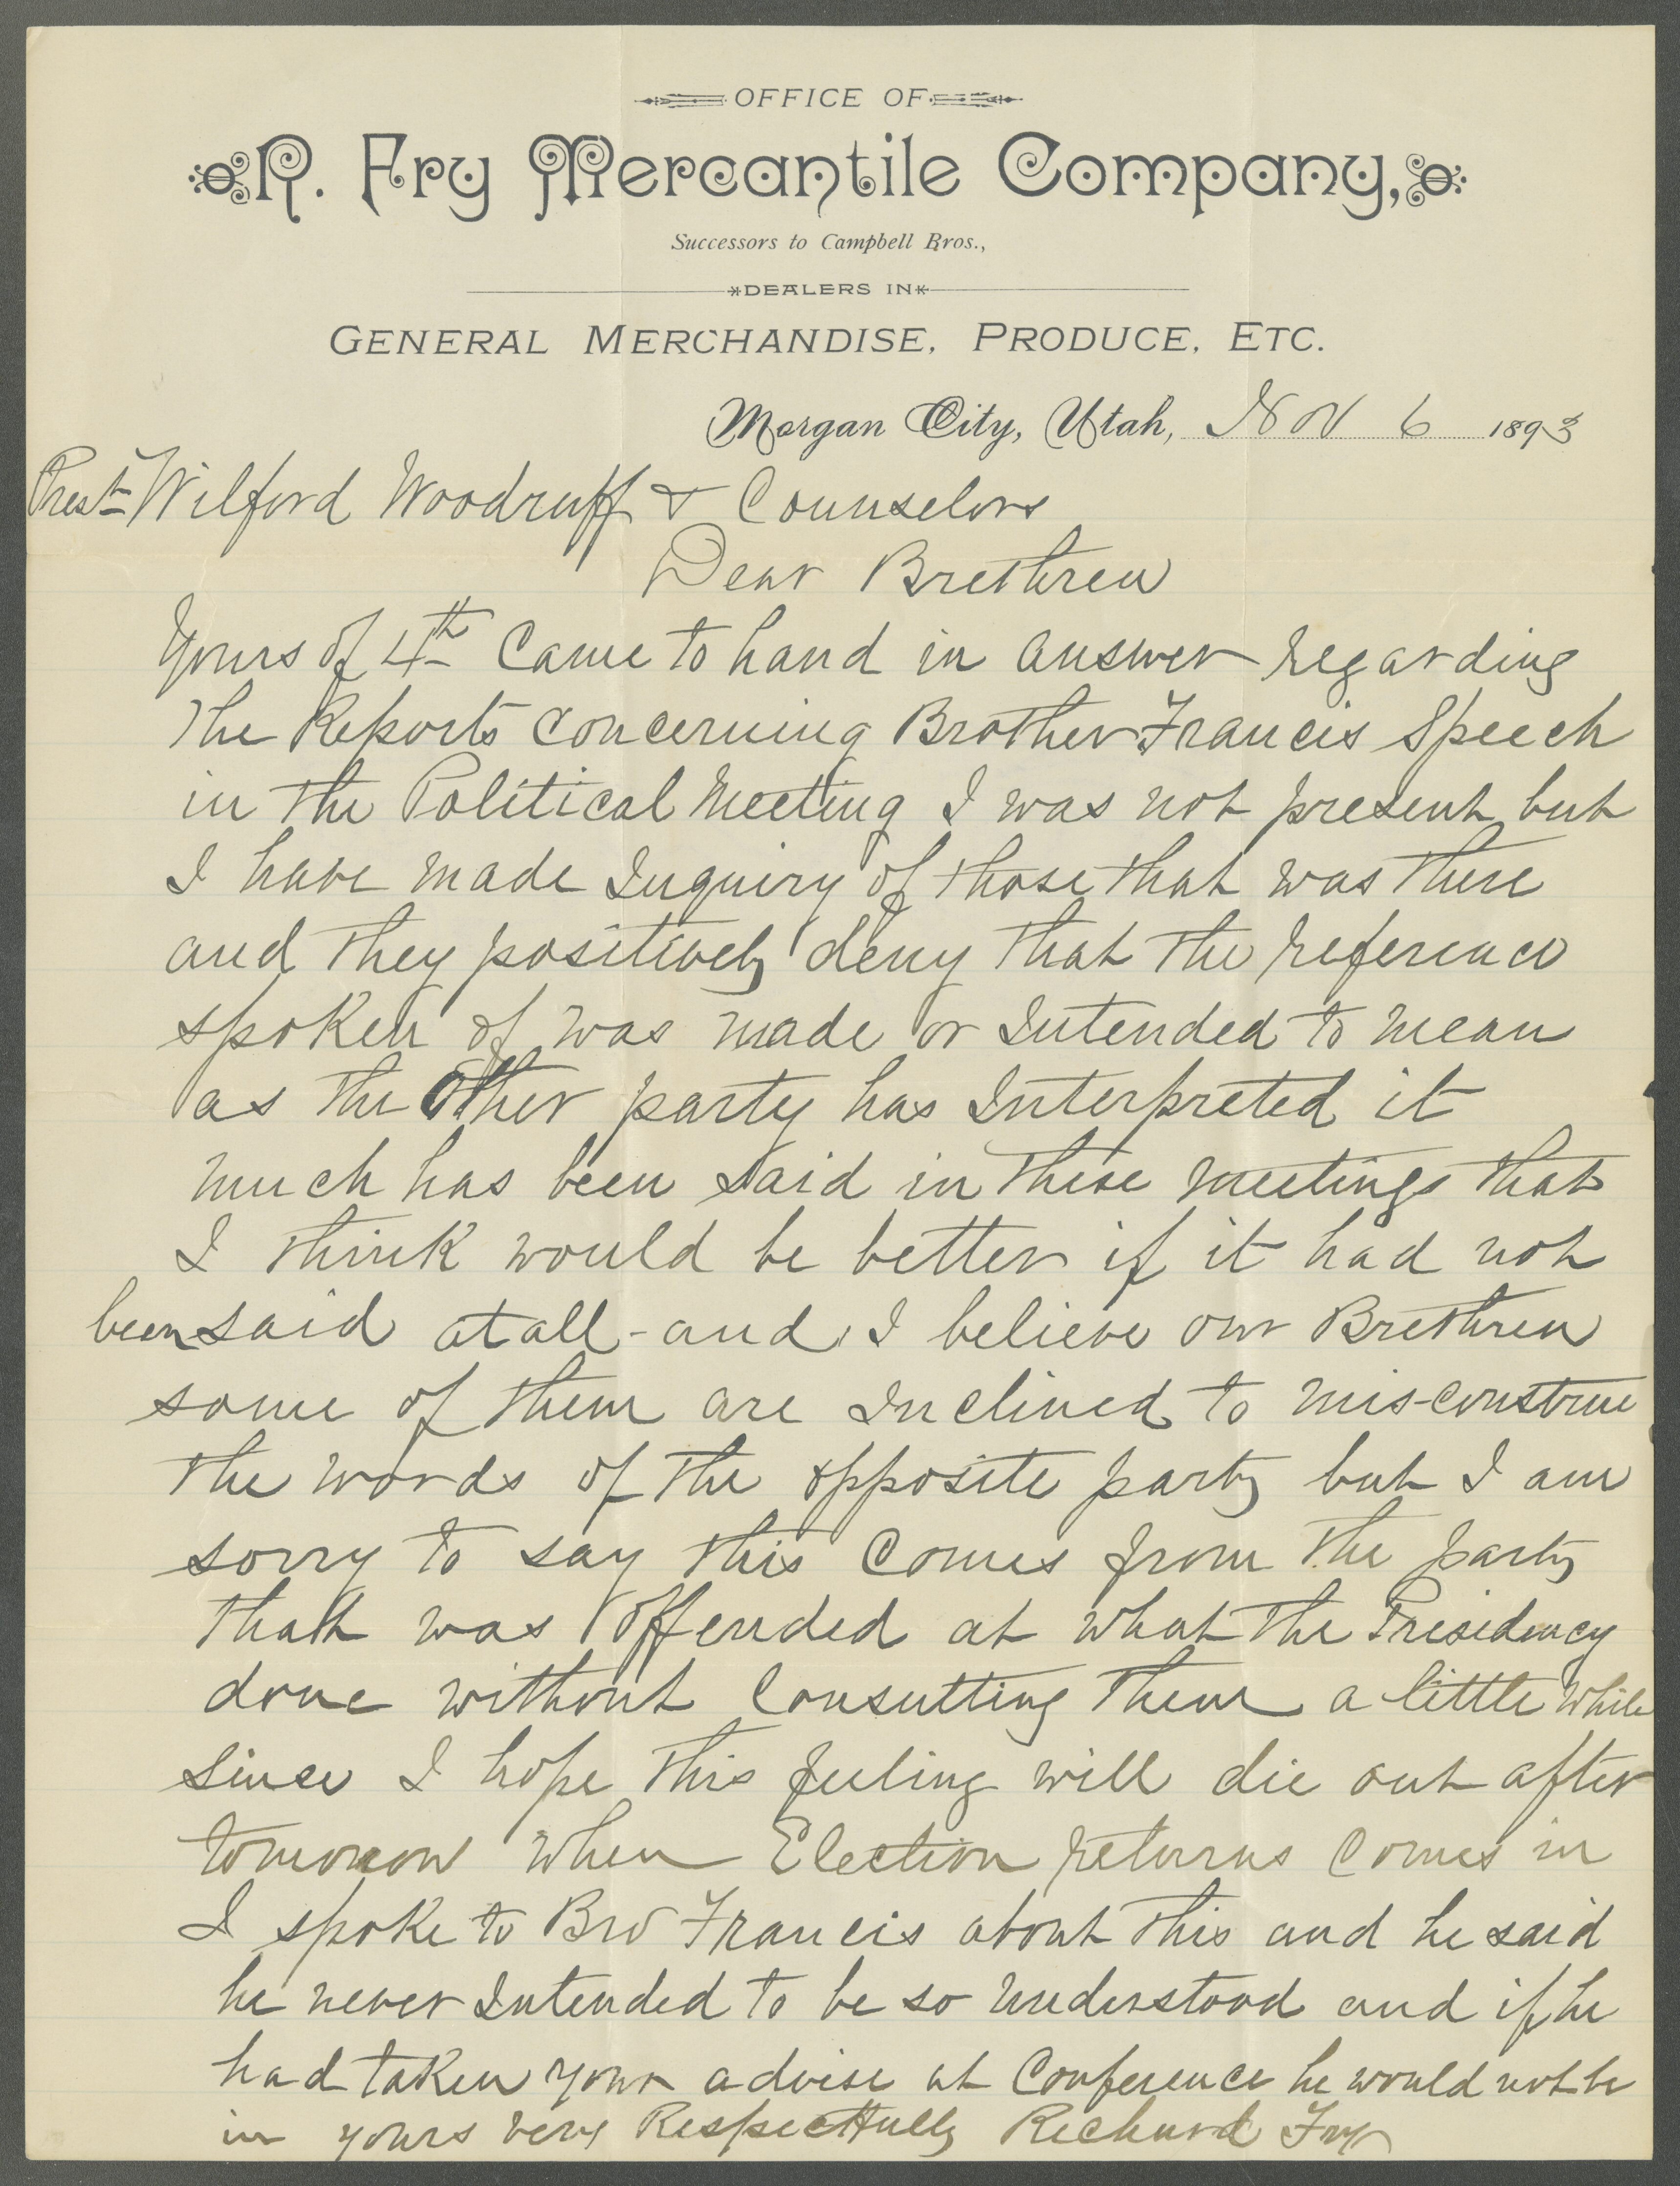 OFFICE OF
R. Fry Mercantile Company,
Successors to Campbell Bros.,
DEALERS IN
GENERAL MERCHANDISE, PRODUCE, ETC.
Morgan City, Utah, Nov 6 1893
Prest Wilford Woodruff & Counselors
Dear Brethren
Yours of 4th Came to hand in answer regarding
the Reports concerning Brother Francis Speech
in the Political Meeting I was not present but
I have made Inquiry of those that was there
and they positively deny that the reference
spoken of was made or Intended to mean
as the Other party has Interpreted it
much has been said in these meetings that
I think would be better if it had not
been said at all - and I believe our Brethren
some of them are Inclined to mis-construe
the words of the opposite party but I am
sorry to say this Comes from the party
that was offended at what the Presidency
done without Consulting them a little while
since I hope this feeling will die out after
tomorrow when Election returns Comes in
I spoke to Bro Francis about this and he said
he never Intended to be so understood and if he
had taken your advise at Conference he would not be
in yours very Respectfully Richard Fry